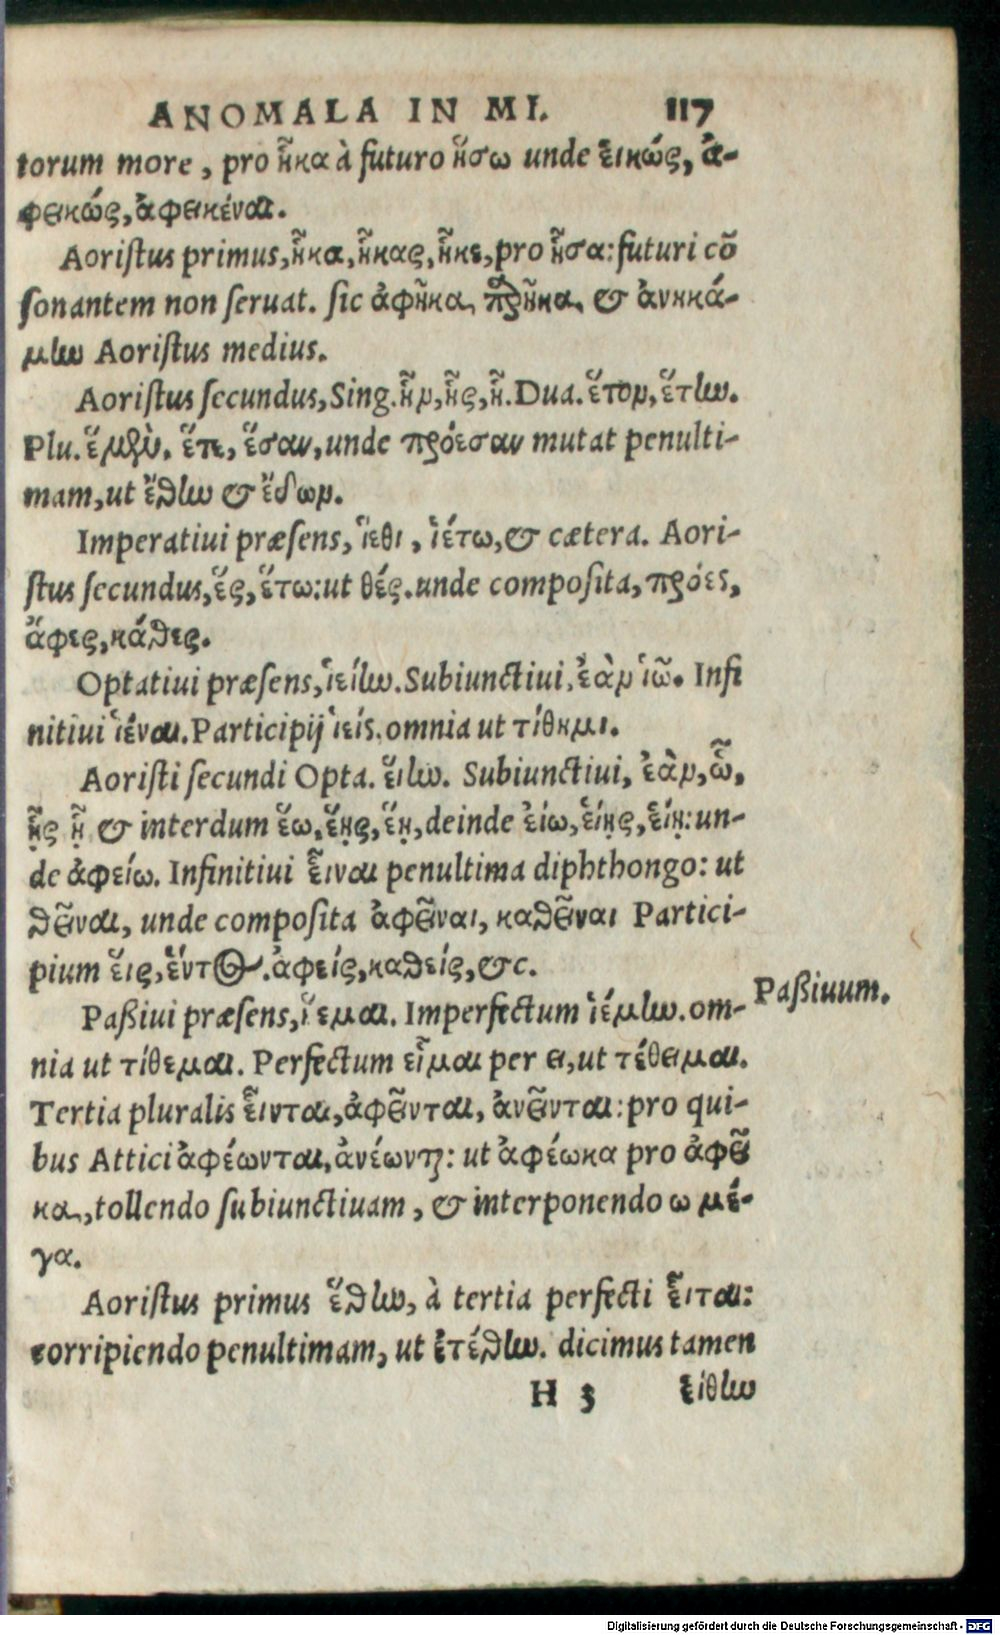 ANOMALA IN MI. 117
torum more, pro ἧκα à futuro ἥσω unde εἱκώς, ἀ-
φεικώς, ἀφεικέναι.
Aoristus primus, ἧκα, ἧκας, ἧκε, pro ἧσα: futuri cō
sonantem non seruat. sic ἀφῆκα, & ἀνηκά-
μην Aoristus medius.
Aoristus secundus, Sing. ἧν, ἧς, ἧ. Dua. ἕτον, ἕτην.
Plu. ἕμεν, ἕτε, ἕσαν, unde πρόεσαν mutat penulti-
mam, ut ἔθην & ἔδων.
Imperatiui præsens, ἵεθι, ἱέτω, & cætera. Aori-
stus secundus, ἕς, ἕτω: ut θές. unde composita, πρόες,
ἄφες, κάθες.
Optatiui præsens, ἱείην. Subiunctiui, ἐὰν ἱῶ. Infi
nitiui ἱέναι. Participij ἱείς. omnia ut τίθημι.
Aoristi secundi Opta. εἵην. Subiunctiui, ἐὰν, ὧ,
ᾗς ᾗ & interdum ἕω, ἕῃς, ἕῃ, deinde εἵω, εἵῃς, εἵῃ: un-
de ἀφείω. Infinitiui εἷναι penultima diphthongo: ut
θεῖναι, unde composita ἀφεῖναι, καθεῖναι Partici-
pium εἵς, ἕντος. ἀφείς, καθείς, &c.
Paßiui præsens, ἵεμαι. Imperfectum ἱέμην. om-
Paßiuum.
nia ut τίθεμαι. Perfectum εἷμαι per ει, ut τέθειμαι.
Tertia pluralis εἷνται, ἀφεῖνται, ἀνεῖνται: pro qui-
bus Attici ἀφέωνται, ἀνέωνται: ut ἀφέωκα pro ἀφεῖ
κα, tollendo subiunctiuam, & interponendo ω μέ-
γα.
Aoristus primus ἕθην, à tertia perfecti εἷται:
corripiendo penultimam, ut ἐτέθην. dicimus tamen
H 3 εἵθην
Digitalisierung gefördert durch die Deutsche Forschungsgemeinschaft - DFG